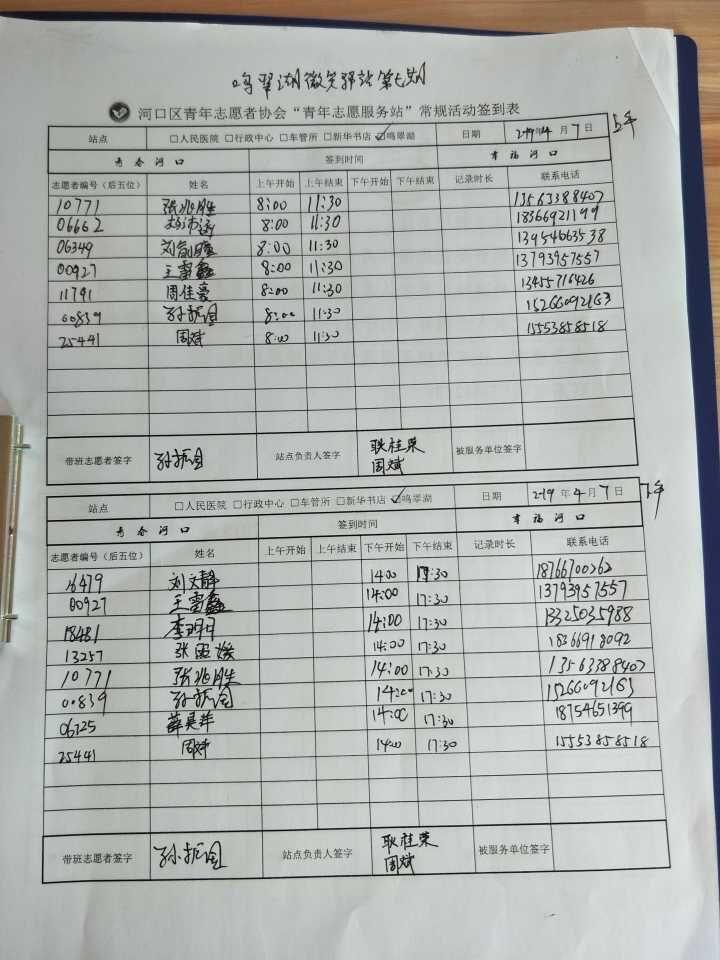 鸣翠湖微笑驿站第七期
河口区青年志愿者协会“青年志愿服务站”常规活动签到表
站点 □人民医院 □行政中心 □车管所 □新华书店 ☑鸣翠湖 日期 2019年4月7日 上午
青春河口 签到时间 幸福河口
志愿者编号（后五位） 姓名 上午开始 上午结束 下午开始 下午结束 记录时长 联系电话
10771 张兆胜 8:00 11:30 13563388407
06662 8:00 11:30 18366921199
06349 8:00 11:30 13954663538
00927 王雷鑫 8:00 11:30 13793957557
11791 周佳豪 8:00 11:30 13455716426
00839 孙振国 8:00 11:30 15266092163
25441 周斌 8:00 11:30 15553858518
带班志愿者签字 孙振国 站点负责人签字 耿桂荣 周斌 被服务单位签字
站点 □人民医院 □行政中心 □车管所 □新华书店 ☑鸣翠湖 日期 2019年4月7日 下午
青春河口 签到时间 幸福河口
志愿者编号（后五位） 姓名 上午开始 上午结束 下午开始 下午结束 记录时长 联系电话
16479 刘文静 14:00 17:30 18766700262
00927 王雷鑫 14:00 17:30 13793957557
18481 李明月 14:00 17:30 13325035988
13257 14:00 17:30 18366918092
10771 张兆胜 14:00 17:30 13563388407
00839 孙振国 14:00 17:30 15266092163
06725 薛昊洋 14:00 17:30 18754651399
25441 周斌 14:00 17:30 15553858518
带班志愿者签字 孙振国 站点负责人签字 耿桂荣 周斌 被服务单位签字